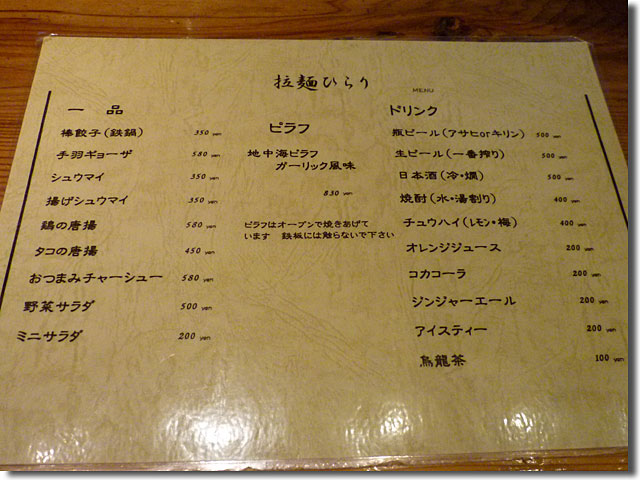 拉麺ひらり MENU
一品
棒餃子(鉄鍋) 350 yen
手羽ギョーザ 580 yen
シュウマイ 350 yen
揚げシュウマイ 350 yen
鶏の唐揚 580 yen
タコの唐揚 450 yen
おつまみチャーシュー 580 yen
野菜サラダ 500 yen
ミニサラダ 200 yen
ピラフ
地中海ピラフ
ガーリック風味
830 yen
ピラフはオーブンで焼きあげて
います 鉄板には触らないで下さい
ドリンク
瓶ビール(アサヒorキリン) 500 yen
生ビール(一番搾り) 500 yen
日本酒(冷・燗) 500 yen
焼酎(水・湯割り) 400 yen
チュウハイ(レモン・梅) 400 yen
オレンジジュース 200 yen
コカコーラ 200 yen
ジンジャーエール 200 yen
アイスティー 200 yen
烏龍茶 100 yen